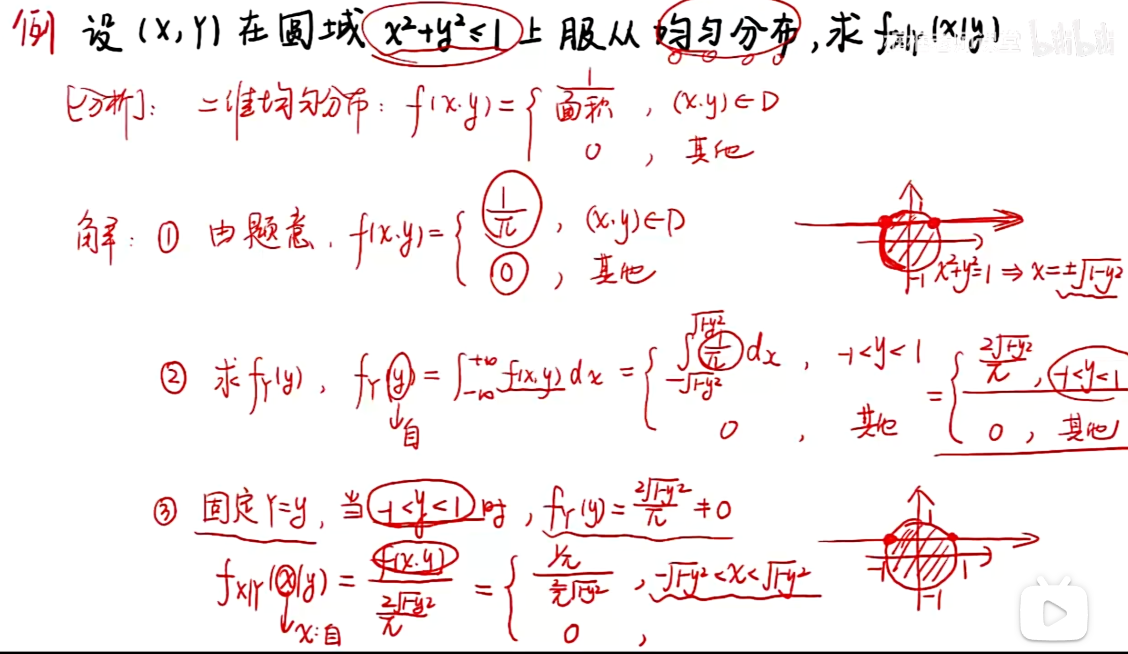 例 设 (X,Y) 在圆域 x²+y²≤1 上服从均匀分布,求 f_{X|Y}(x|y)
bilibili
[分析]: 二维均匀分布: f(x,y)={ 1/面积 , (x,y)∈D
0 , 其他
解: ① 由题意, f(x,y)={ 1/π , (x,y)∈D
0 , 其他
1
-1 x²+y²=1 ⇒ x=±√1-y²
② 求f_Y(y), f_Y(y)=∫_{-∞}^{+∞} f(x,y)dx={ ∫_{-√1-y²}^{√1-y²} 1/π dx , -1<y<1 ={ 2√1-y²/π , -1<y<1
0 , 其他 0 , 其他
↓自
③ 固定Y=y, 当 -1<y<1 时, f_Y(y)=2√1-y²/π ≠0
f_{X|Y}(x|y)= f(x,y)/(2√1-y²/π) ={ (1/π)/(2/π √1-y²) , -√1-y²<x<√1-y²
0 ,
↓x:自
1
-1 1
-1